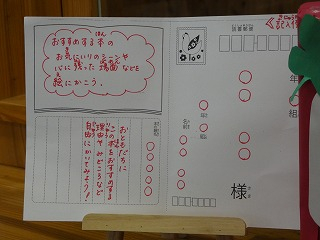 おすすめする本の
お気にいりのシーンや
心に残った場面などを
絵にかこう。
おともだちに
この本をおすすめする
理由やみどころなど
自由にかいてみよう!
読書郵便
年
組
様
年
組